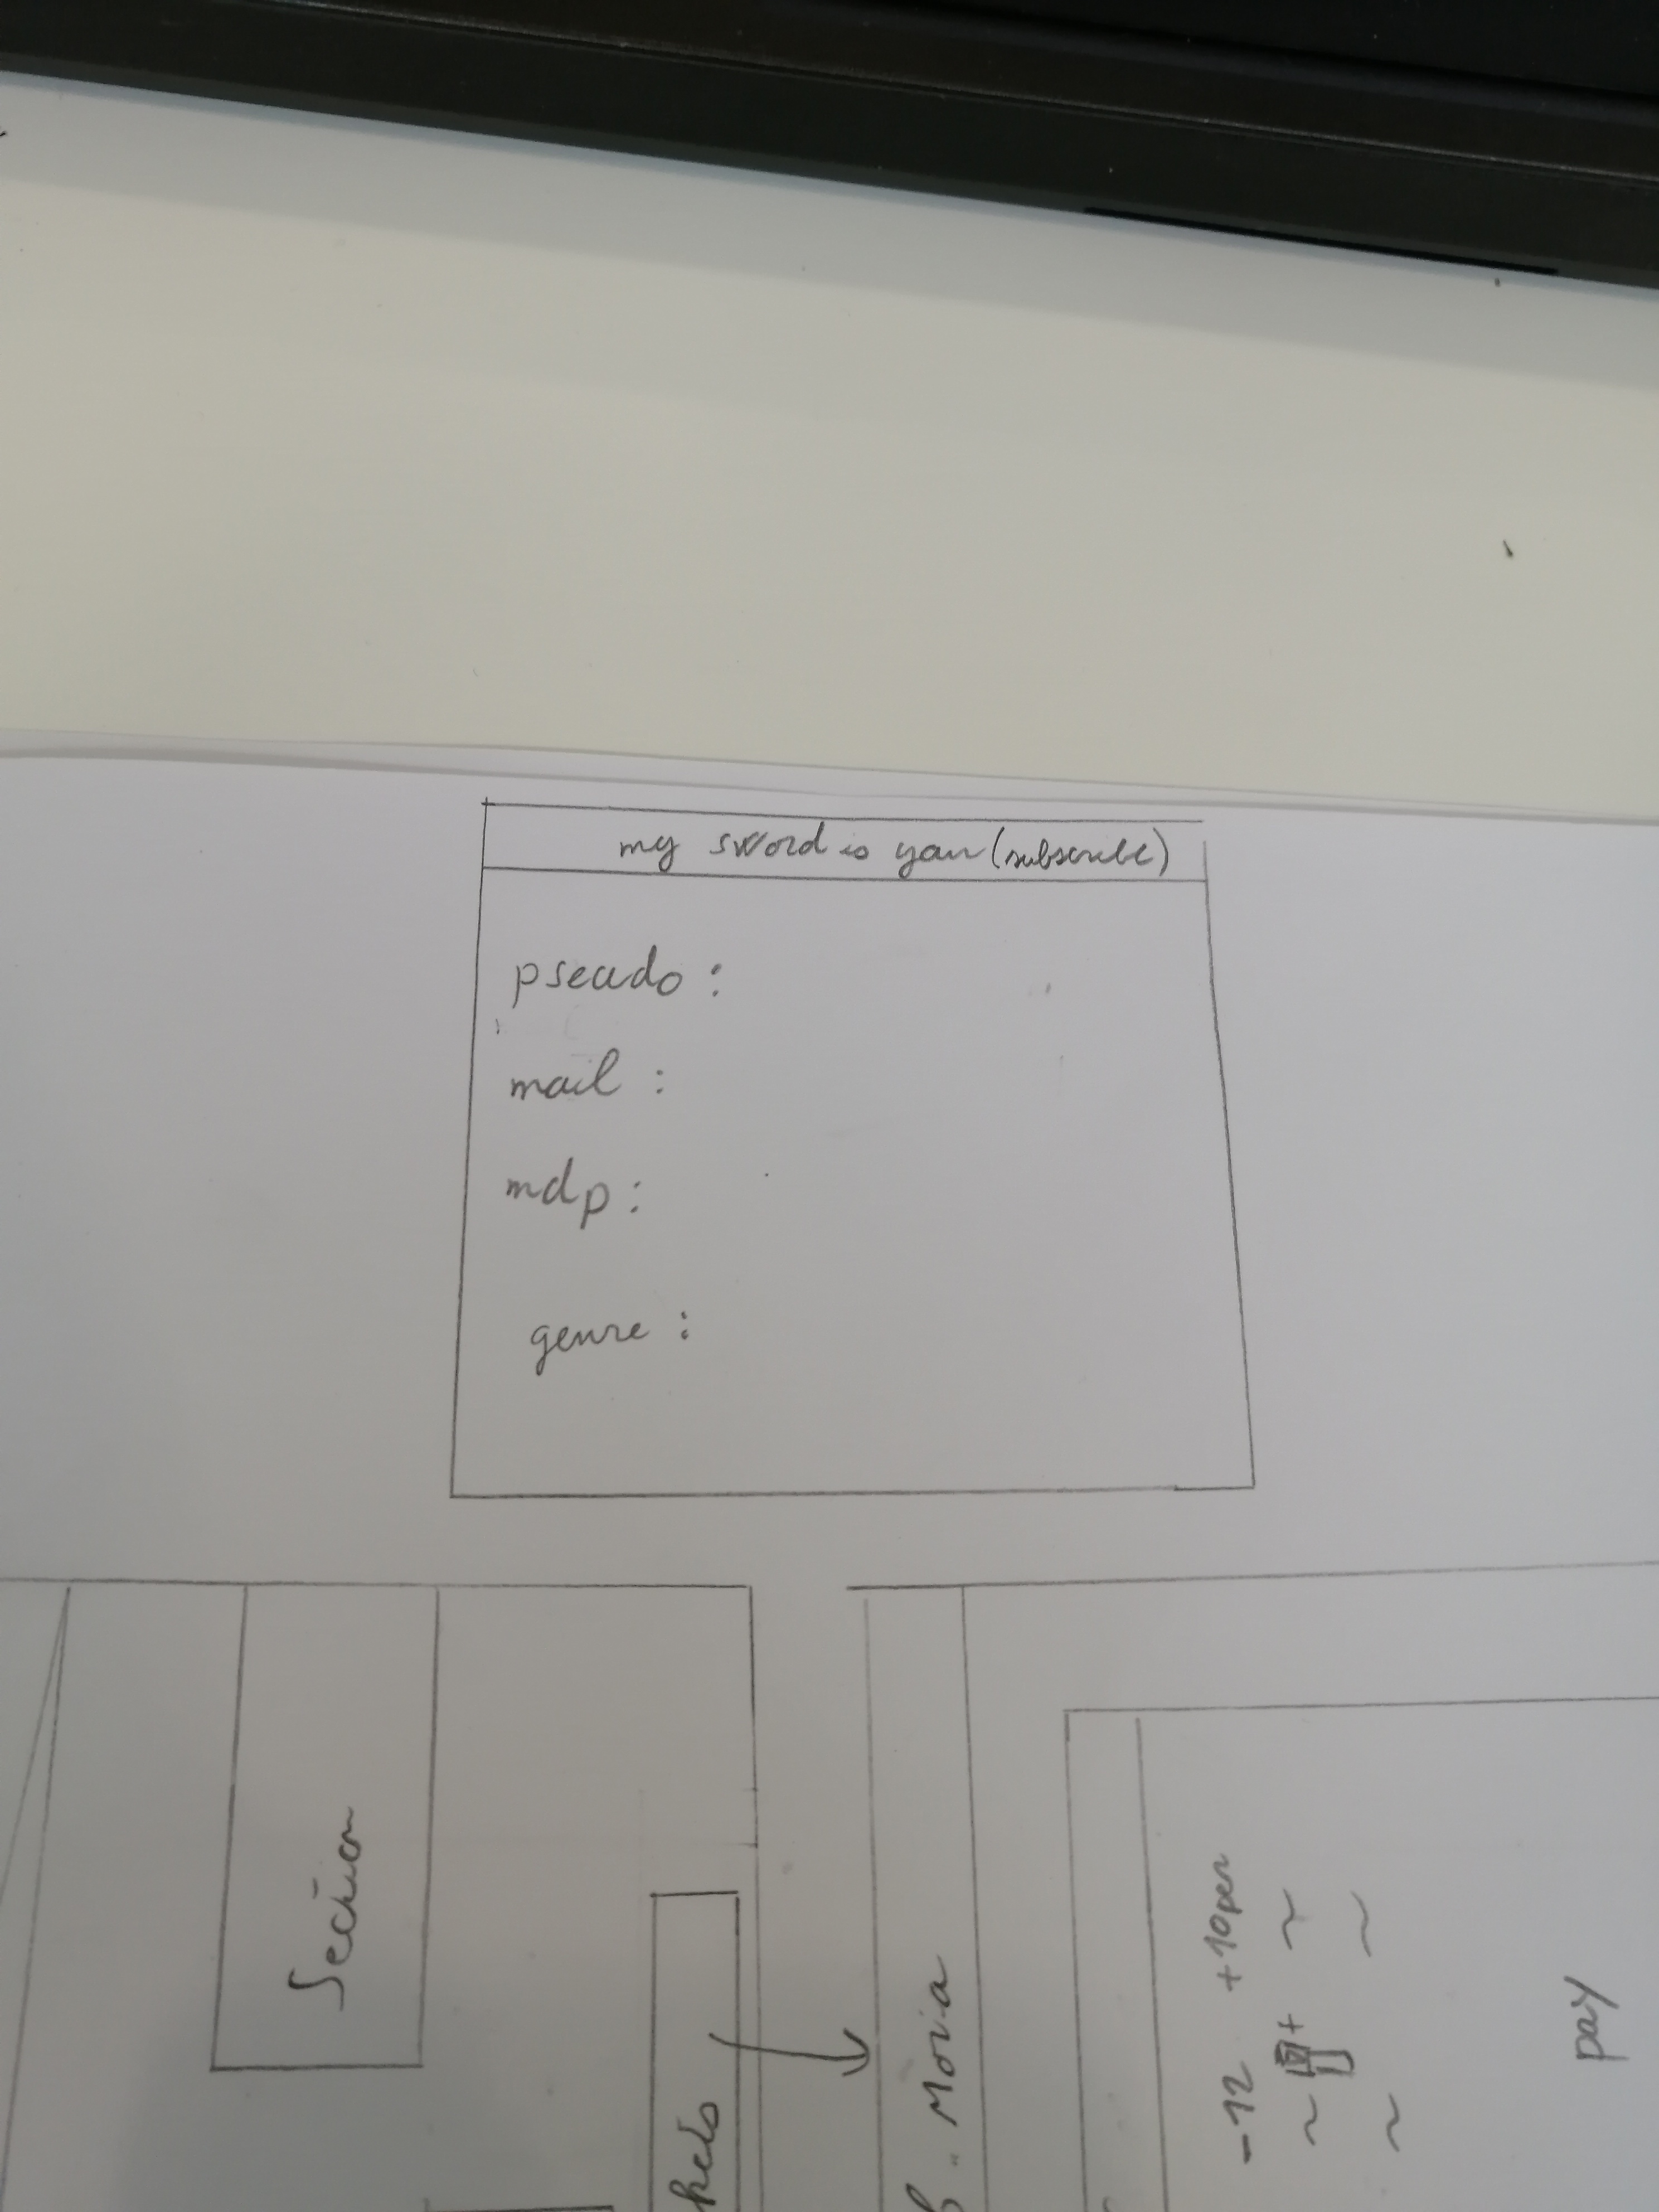 my sword is your (subscribe)
pseudo :
mail :
mdp :
genre :
Section
Moria
-12 +10per
~ + ~
~ ~
pay